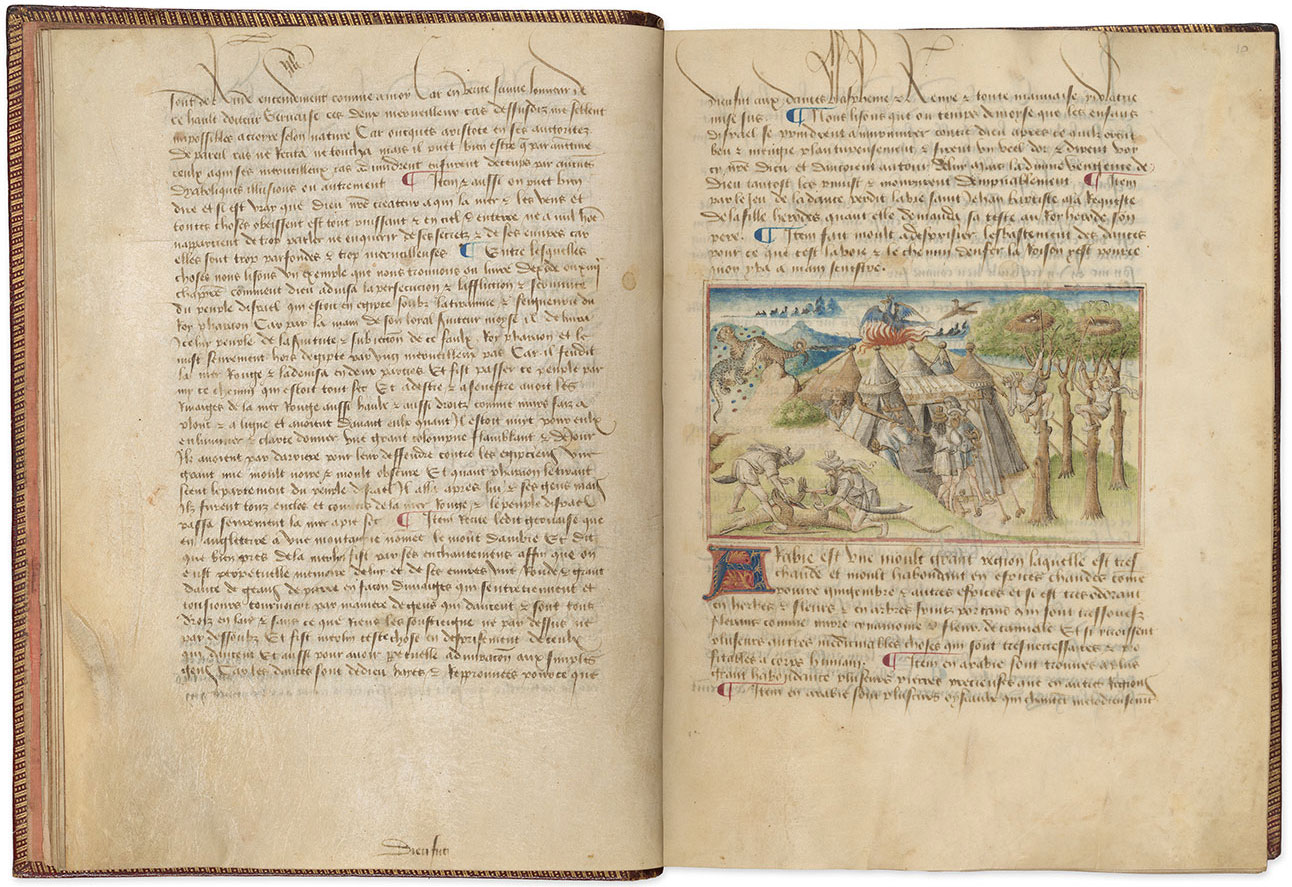 sont de Rude entendement comme a moy Car en verite saulve lonneur de
ce hault docteur Gervaise ces deux merveilleux cas dessusdiz me semblent
impossibles actorre selon nature Car oncques aristote en ses auctoritez
de pareil cas ne Recita ne toucha mais il peult bien estre que par
ceulx a qui ses merveilleux cas advindrent en furent deceups par aucunes
dyaboliques illusions ou autrement ¶ Item et aussi on peult bien
dire et si est vray que dieu nostre createur a qui la mer et les vens et
toutes choses obeissent est tout puissant et en ciel et en terre ne a nul hōe
nappartient de trop parler ne enquerir de ses secretz et de ses euvres car
elles sont trop parfondes et trop merveilleuses ¶ Entre lesquelles
choses nous lisons un exemple que nous trouvons ou livre dexode ou xiiij
chapitre comment dieu advisa la persecucion et laffliction et servitute
du peuple disrael qui estoit en egipte soubz la tirannie et seigneurie du
Roy pharaon Car par la main de son loial serviteur moyse il delivra
icelui peuple de la servitute et subiection de ce faulx Roy pharaon et le
mist seurement hors degipte par ung merveilleux pas Car il fendit
la mer Rouge et la devisa en deux parties Et fist passer ce peuple par
my ce chemin qui estoit tout sec Et a dextre et a senestre avoit les
Rivages de la mer Rouge aussi haulx et aussi droitz comme murs faiz a
plonc et a ligne et avoient devant eulx quant il estoit nuyt pour eulx
enluminer et clarte donner une grant colompne flambant et de jour
ilz avoient par darriere pour leur deffendre contre les egipciens une
grant nue moult noire et moult obscure Et quant pharaon le tirant
sceut le partement du peuple disrael il alla apres lui et ses gens mais
ilz furent tous enclos et couvers de la mer Rouge et le peuple disrael
passa seurement la mer a pie sec ¶ Item Recite ledit gervaise que
en angleterre a une montaigne nomme le mont dambie Et dit
que bien pres de la merlin fist par ses enchantemens affin que on
eust perpetuelle memoire de lui et de ses euvres une Ronde et grant
dance de geans de pierre en facon dimaiges qui sentretiennent et
tousiours tournoient par maniere de gens qui dancent et sont tous
droiz en lair et sans ce que riens les soustiengne ne par dessus ne
par dessoubz Et fist merlin ceste chose en desprisement de ceulx
qui dancent Et aussi pour avoir perpetuelle admiracion aux simples
gens Car les dances sont de dieu hayes et Reprouvees pour ce que
Dieu fut
10
Dieu fut aux dances blaspheme et Renye et toute mauvaise ydolatrie
mise sus. ¶ Nous lisons que ou temps de moyse que les enfans
disrael se prindrent a murmurer contre dieu apres ce quilz eurent
beu et mengie plantureusement et firent un veel dor et dirent voi
cy nostre dieu et dancoient autour Mais la divine vengence de
dieu tantost les pinist et moururent ¶ Item
par le jeu de la dance perdit la vie saint Jehan baptiste a la Requeste
de la fille herodes quant elle demanda sa teste au Roy herode son
pere. ¶ Item fait moult a desprisier lesbastement des dances
pour ce que cest la voie et le chemin denfer la Raison est pource
moy va a main senestre.
Arabie est une moult grant region laquelle est tres
chaude et moult habondant en espices chaudes come
poivre gingembre et autres espices et si est tres odorant
en herbes et fleurs et en arbres fruiz portans qui sont tressouef
flerans comme mirre cynamome et fleur de canielle Et si croissent
plusieurs autres medicinables choses qui sont tresnecessaires et prof
fitables a corps humain. ¶ Item en arabie sont trouvees a plus
grant habondance plusieurs pierres precieuses que en autres Regions
¶ Item en arabie sont plusieurs oyseaulx qui chantent melodieusement